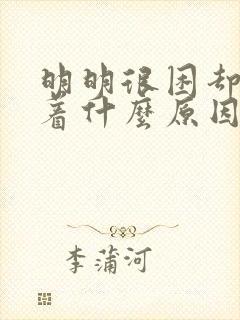 明明很困却
着什麼原因
李蒲河